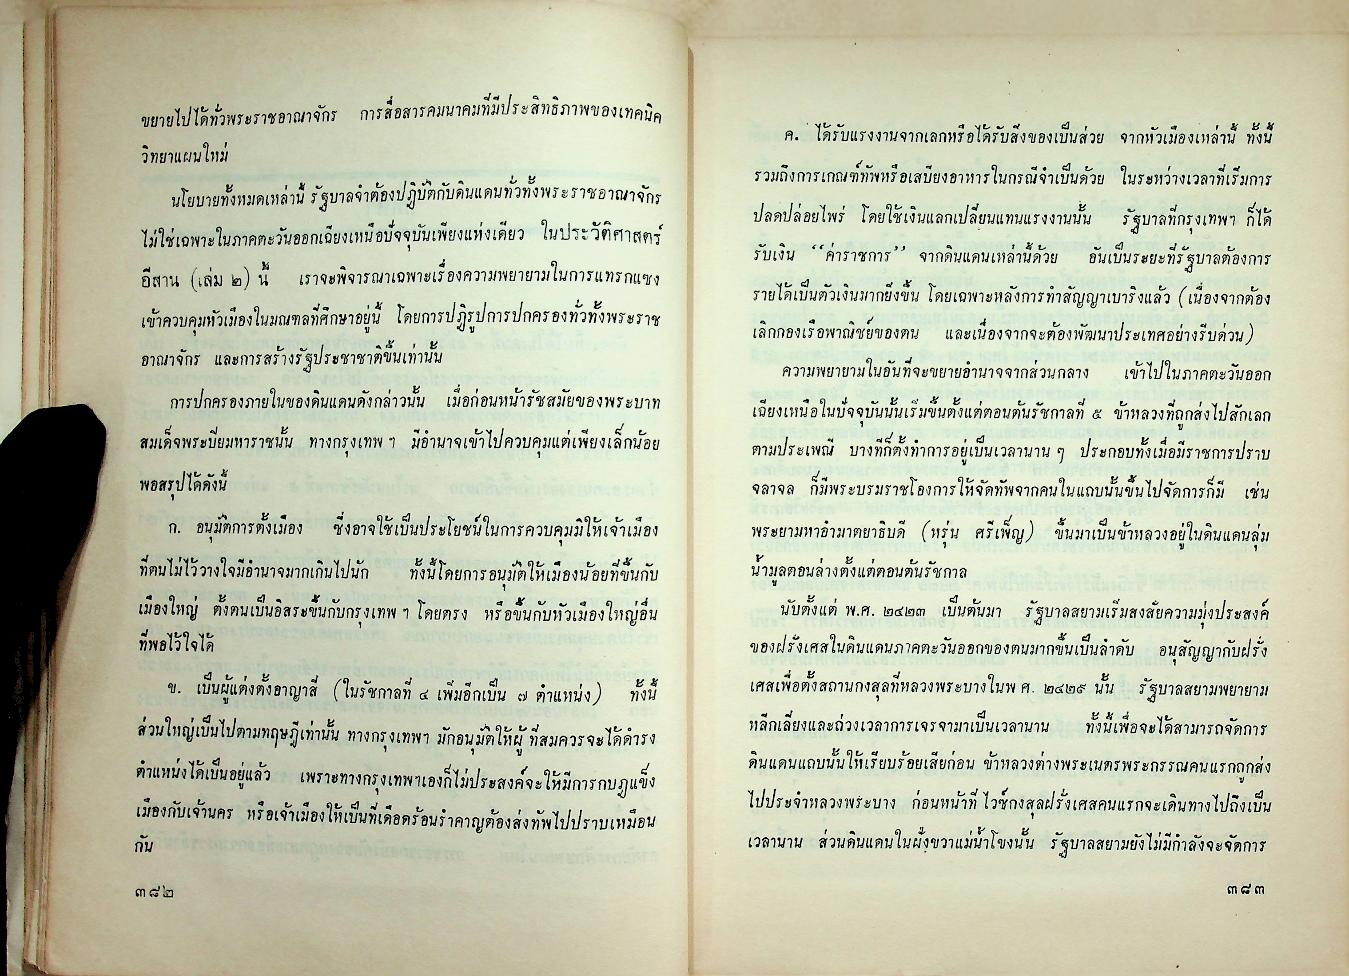 ขยายไปได้ทั่วพระราชอาณาจักร การสื่อสารคมนาคมที่มีประสิทธิภาพของเทคนิค
วิทยาแผนใหม่
นโยบายทั้งหมดเหล่านี้ รัฐบาลจำต้องปฏิบัติกับดินแดนทั่วทั้งพระราชอาณาจักร
ไม่ใช่เฉพาะในภาคตะวันออกเฉียงเหนือปัจจุบันเพียงแห่งเดียว ในประวัติศาสตร์
อีสาน (เล่ม ๒) นี้ เราจะพิจารณาเฉพาะเรื่องความพยายามในการแทรกแซง
เข้าควบคุมหัวเมืองในมณฑลที่ศึกษาอยู่นี้ โดยการปฏิรูปการปกครองทั่วทั้งพระราช
อาณาจักร และการสร้างรัฐประชาชาติขึ้นเท่านั้น
การปกครองภายในของดินแดนดังกล่าวนั้น เมื่อก่อนหน้ารัชสมัยของพระบาท
สมเด็จพระปิยมหาราชนั้น ทางกรุงเทพ ฯ มีอำนาจเข้าไปควบคุมแต่เพียงเล็กน้อย
พอสรุปได้ดังนี้
ก. อนุมัติการตั้งเมือง ซึ่งอาจใช้เป็นประโยชน์ในการควบคุมมิให้เจ้าเมือง
ที่ตนไม่ไว้วางใจมีอำนาจมากเกินไปนัก ทั้งนี้โดยการอนุมัติให้เมืองน้อยที่ขึ้นกับ
เมืองใหญ่ ตั้งตนเป็นอิสระขึ้นกับกรุงเทพ ฯ โดยตรง หรือขึ้นกับหัวเมืองใหญ่อื่น
ที่พอไว้ใจได้
ข. เป็นผู้แต่งตั้งอาญาสี่ (ในรัชกาลที่ ๔ เพิ่มอีกเป็น ๗ ตำแหน่ง) ทั้งนี้
ส่วนใหญ่เป็นไปตามทฤษฎีเท่านั้น ทางกรุงเทพฯ มักอนุมัติให้ผู้ ที่สมควรจะได้ดำรง
ตำแหน่งได้เป็นอยู่แล้ว เพราะทางกรุงเทพฯเองก็ไม่ประสงค์จะให้มีการกบฏแข็ง
เมืองกับเจ้านคร หรือเจ้าเมืองให้เป็นที่เดือดร้อนรำคาญต้องส่งทัพไปปราบเหมือน
กัน
๓๘๒
ค. ได้รับแรงงานจากเลกหรือได้รับสิ่งของเป็นส่วย จากหัวเมืองเหล่านี้ ทั้งนี้
รวมถึงการเกณฑ์ทัพหรือเสบียงอาหารในกรณีจำเป็นด้วย ในระหว่างเวลาที่เริ่มการ
ปลดปล่อยไพร่ โดยใช้เงินแลกเปลี่ยนแทนแรงงานนั้น รัฐบาลที่กรุงเทพฯ ก็ได้
รับเงิน “ค่าราชการ” จากดินแดนเหล่านี้ด้วย อันเป็นระยะที่รัฐบาลต้องการ
รายได้เป็นตัวเงินมากยิ่งขึ้น โดยเฉพาะหลังการทำสัญญาเบาริงแล้ว (เนื่องจากต้อง
เลิกกองเรือพาณิชย์ของตน และเนื่องจากจะต้องพัฒนาประเทศอย่างรีบด่วน)
ความพยายามในอันที่จะขยายอำนาจจากส่วนกลาง เข้าไปในภาคตะวันออก
เฉียงเหนือในปัจจุบันนั้นเริ่มขึ้นตั้งแต่ตอนต้นรัชกาลที่ ๕ ข้าหลวงที่ถูกส่งไปสักเลก
ตามประเพณี บางทีก็ตั้งทำการอยู่เป็นเวลานาน ๆ ประกอบทั้งเมื่อมีราชการปราบ
จลาจล ก็มีพระบรมราชโองการให้จัดทัพจากคนในแถบนั้นขึ้นไปจัดการก็มี เช่น
พระยามหาอำมาตยาธิบดี (หรุ่น ศรีเพ็ญ) ขึ้นมาเป็นข้าหลวงอยู่ในดินแดนลุ่ม
น้ำมูลตอนล่างตั้งแต่ตอนต้นรัชกาล
นับตั้งแต่ พ.ศ. ๒๔๒๓ เป็นต้นมา รัฐบาลสยามเริ่มสงสัยความมุ่งประสงค์
ของฝรั่งเศสในดินแดนภาคตะวันออกของตนมากขึ้นเป็นลำดับ อนุสัญญากับฝรั่ง
เศสเพื่อตั้งสถานกงสุลที่หลวงพระบางในพ ศ. ๒๔๒๙ นั้น รัฐบาลสยามพยายาม
หลีกเลี่ยงและถ่วงเวลาการเจรจามาเป็นเวลานาน ทั้งนี้เพื่อจะได้สามารถจัดการ
ดินแดนแถบนั้นให้เรียบร้อยเสียก่อน ข้าหลวงต่างพระเนตรพระกรรณคนแรกถูกส่ง
ไปประจำหลวงพระบาง ก่อนหน้าที่ ไวซ์กงสุลฝรั่งเศสคนแรกจะเดินทางไปถึงเป็น
เวลานาน ส่วนดินแดนในฝั่งขวาแม่น้ำโขงนั้น รัฐบาลสยามยังไม่มีกำลังจะจัดการ
๓๘๓